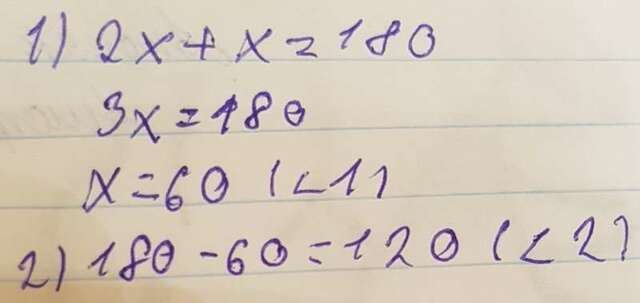 1) 2x+x=180
3x=180
x=60 (<1)
2) 180-60=120 (<2)